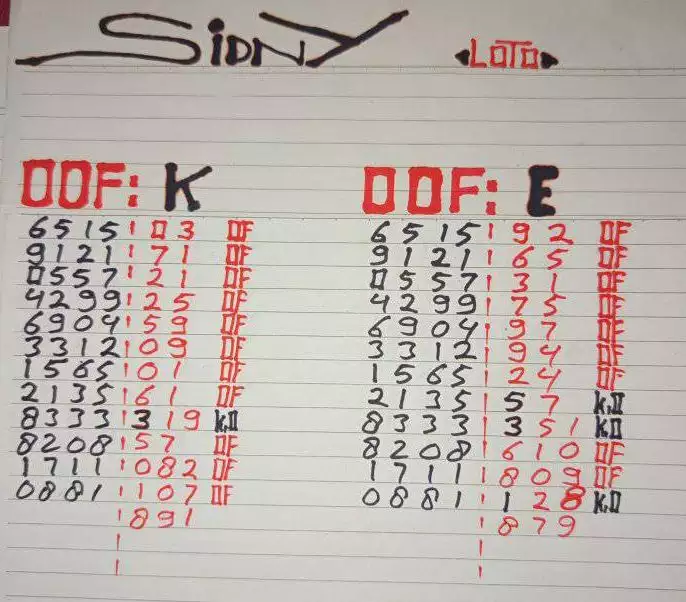 SiDNY LOTO
OOF: K OOF: E
6515 03 OF 6515 92 OF
9121 71 OF 9121 65 OF
0557 21 OF 0557 31 OF
4299 25 OF 4299 75 OF
6904 59 OF 6904 97 OF
3312 09 OF 3312 94 OF
1565 01 OF 1565 24 OF
2135 61 OF 2135 57
8333 319 8333 351
8208 57 OF 8208 610 OF
1711 082 OF 1711 809 OF
0881 107 OF 0881 128
891 879